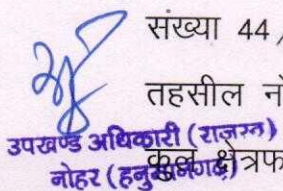 संख्या 44/
तहसील नो
उपखण्ड अधिकारी (राजस्व)
नोहर (हनुमानगढ़)
कुल क्षेत्रफ